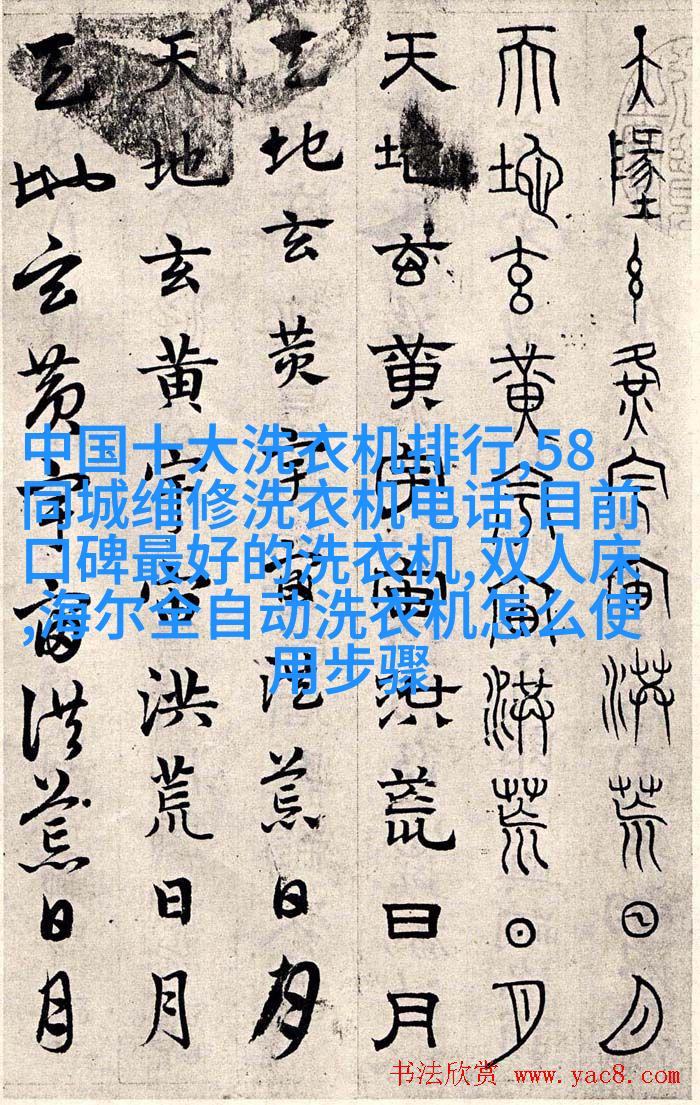 天地玄黄宇宙洪荒日月
天地玄黄宇宙洪荒日月
天地玄黄宇宙洪荒日月
天地玄黄宇宙洪荒日月
天地玄黄宇宙洪荒日月
天地玄黄宇宙洪荒日月
中国十大洗衣机排行,58
同城维修洗衣机电话,目前
口碑最好的洗衣机,双人床
,海尔全自动洗衣机怎么使
用步骤
书法欣赏 www.yac8.com